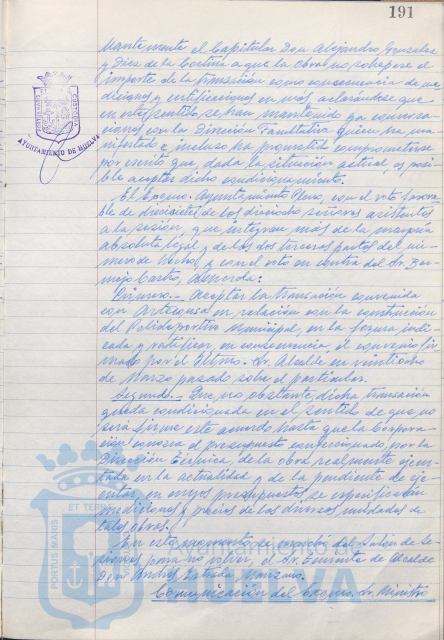 191
mantemente el Capitular Don Alejandro González
y Díez de la Cortina a que la obra no sobrepase el
importe de la transación como consecuencia de me-
diciones y certificaciones en más, aclarándose que
en este sentido se han mantenido ya conversa-
ciones con la Dirección Facultativa quien ha ma-
nifestado e incluso ha prometido comprometerse
por escrito que, dada la situación actual, es posi-
ble aceptar dicho condicionamiento.
El Excmo. Ayuntamiento Pleno, con el voto favora-
ble de diecisiete de los dieciocho señores asistentes
a la sesión, que integran más de la mayoría
absoluta legal y de las dos terceras partes del nú-
mero de hecho, y con el voto en contra del Sr. Ber-
mejo Castro, Acuerda:
Primero.- Aceptar la transación convenida
con en relación con la construcción
del Polideportivo Municipal, en la forma indi-
cada y ratificar, en consecuencia, el convenio fir-
mado por el Iltmo. Sr. Alcalde en veintiocho
de Marzo pasado sobre el particular.
Segundo.- Que no obstante, dicha transación
queda condicionada en el sentido de que no
será firme este acuerdo hasta que la Corpora-
ción conozca el presupuesto confeccionado por la
Dirección Técnica de la obra realmente ejecu-
tada en la actualidad y de la pendiente de eje-
cutar, en cuyos presupuestos se especificarán
mediciones y precios de las diversas unidades de
tales obras.
En este momento se marchó del Salón de Se-
siones para no volver, el Sr. Teniente de Alcalde
Don Andrés Estrada Manzano.
Comunicación del Excmo. Sr. Ministro
AYUNTAMIENTO DE HUELVA
PORTUS MARIS ET TERRAE
Ayuntamiento de
HUELVA